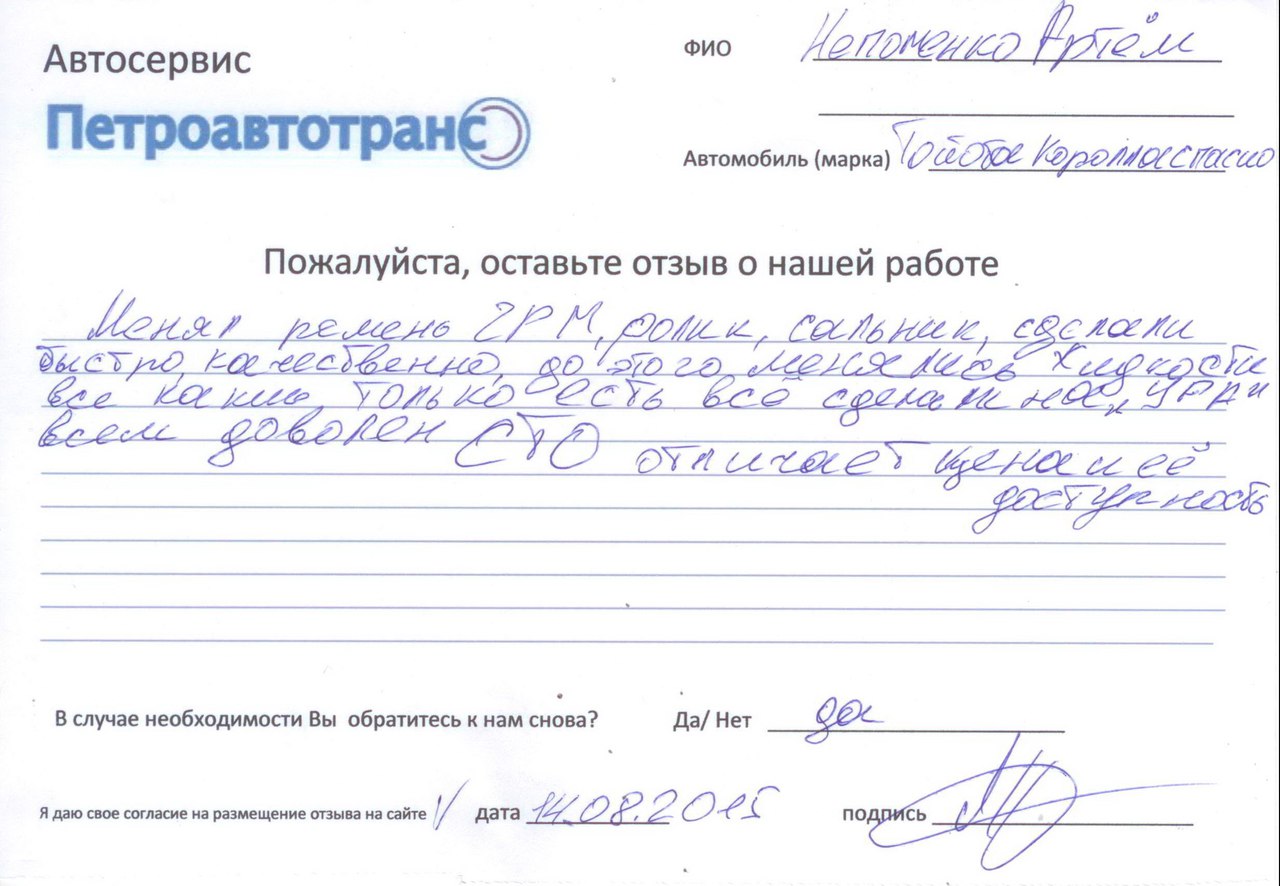 Автосервис
Петроавтотранс
ФИО Непоменко Артём
Автомобиль (марка) Тойота Королла спасио
Пожалуйста, оставьте отзыв о нашей работе
Менял ремень ГРМ, ролик, сальник, сделали
быстро, качественно, до этого менялись жидкости
все какие только есть всё сделали на УРА и
всем доволен СТО отличает цена и её
доступность
В случае необходимости Вы обратитесь к нам снова? Да/ Нет да
Я даю свое согласие на размещение отзыва на сайте V дата 14.08.2015 подпись